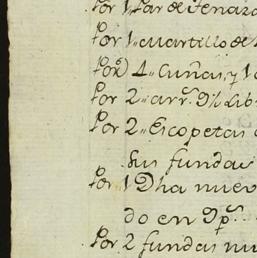 Por 1,, Par de Tenaza
Por 1,, cuartillo de
Por 4,, Cuñas, y 1
Por 2,, arr.s
Por 2,, Escopetas
Sus fundas
Por 1 Dha nuev
do en Dp.s
Por 2 fundas nu